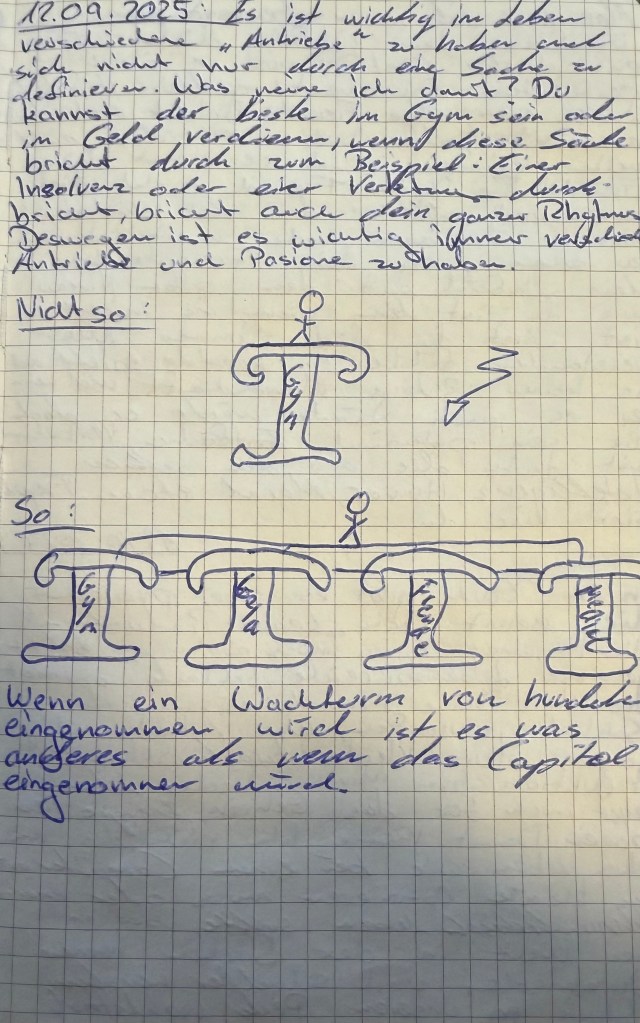 12.09.2025: Es ist wichtig im Leben
verschiedene „Antriebe" zu haben und
sich nicht nur durch eine Sache zu
definieren. Was meine ich damit? Du
kannst der beste im Gym sein oder
im Geld verdienen, wenn diese Säule
bricht durch zum Beispiel: Einer
Insolvenz oder einer durch
bricht, bricht auch dein ganzer Rhytmus
Deswegen ist es wichtig immer verschied
Antriebe und Pasione zu haben.
Nicht so:
Gym
So:
Gym
Wenn ein Wachturm von hunderte
eingenommen wird ist es was
anderes als wenn das Capitol
eingenommen wird.